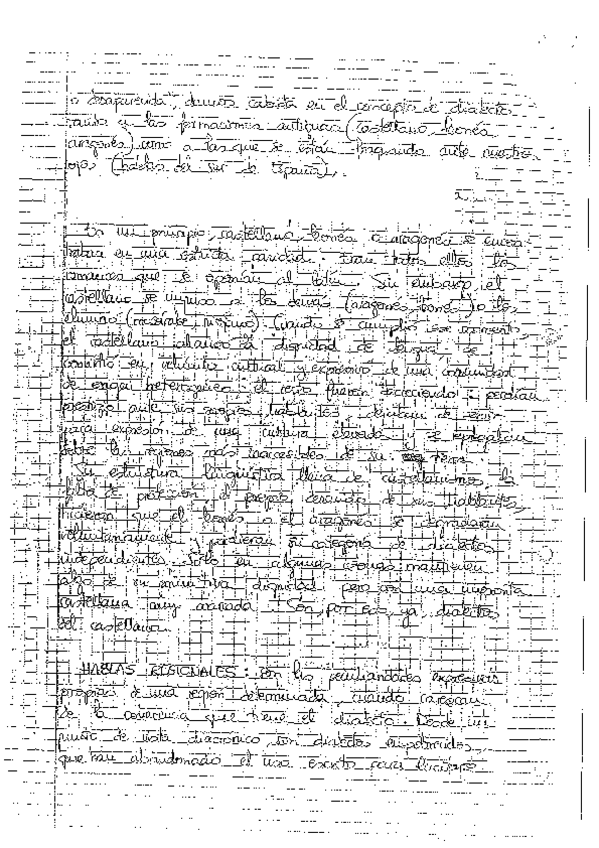 o desaparecida", demos cabida en el concepto de dialecto
tanto a las formaciones antiguas (castellano, leonés
aragonés) como a las que se están fraguando ante nuestros
ojos (hablas del sur de España).
En un principio, castellano, leonés o aragonés se encon-
traban en una estricta paridad. Eran todos ellos los
romances que se oponían al latín. Sin embargo, el
castellano se impuso a los demás (aragonés, leonés) o los
eliminó (mozárabe, ). Cuando se cumplió ese momento,
el castellano alcanzó la dignidad de lengua, se
convirtió en vehículo cultural y expresivo de una comunidad
de origen heterogéneo; el resto fueron : perdían
prestigio ante sus propios hablantes, dejaban de ser-
vir para expresión de una cultura elevada y se
sobre las regiones más inaccesibles de su
Su estructura lingüística llena de castellanismos, la
falta de protección, el propio de sus hablantes,
hicieron que el leonés o el aragonés se
voluntariamente y perdieran su categoría de dialectos
independientes. Sólo en algunas zonas mantienen
algo de su primitiva dignidad, pero con una impronta
castellana muy marcada. Son, por eso, ya, dialectos
del castellano.
HABLAS REGIONALES: Son las peculiaridades expresivas
propias de una región determinada, cuando carecen
de la coherencia que tiene el dialecto. Desde un
punto de vista diacrónico, son dialectos empobrecidos,
que han abandonado el uso escrito para